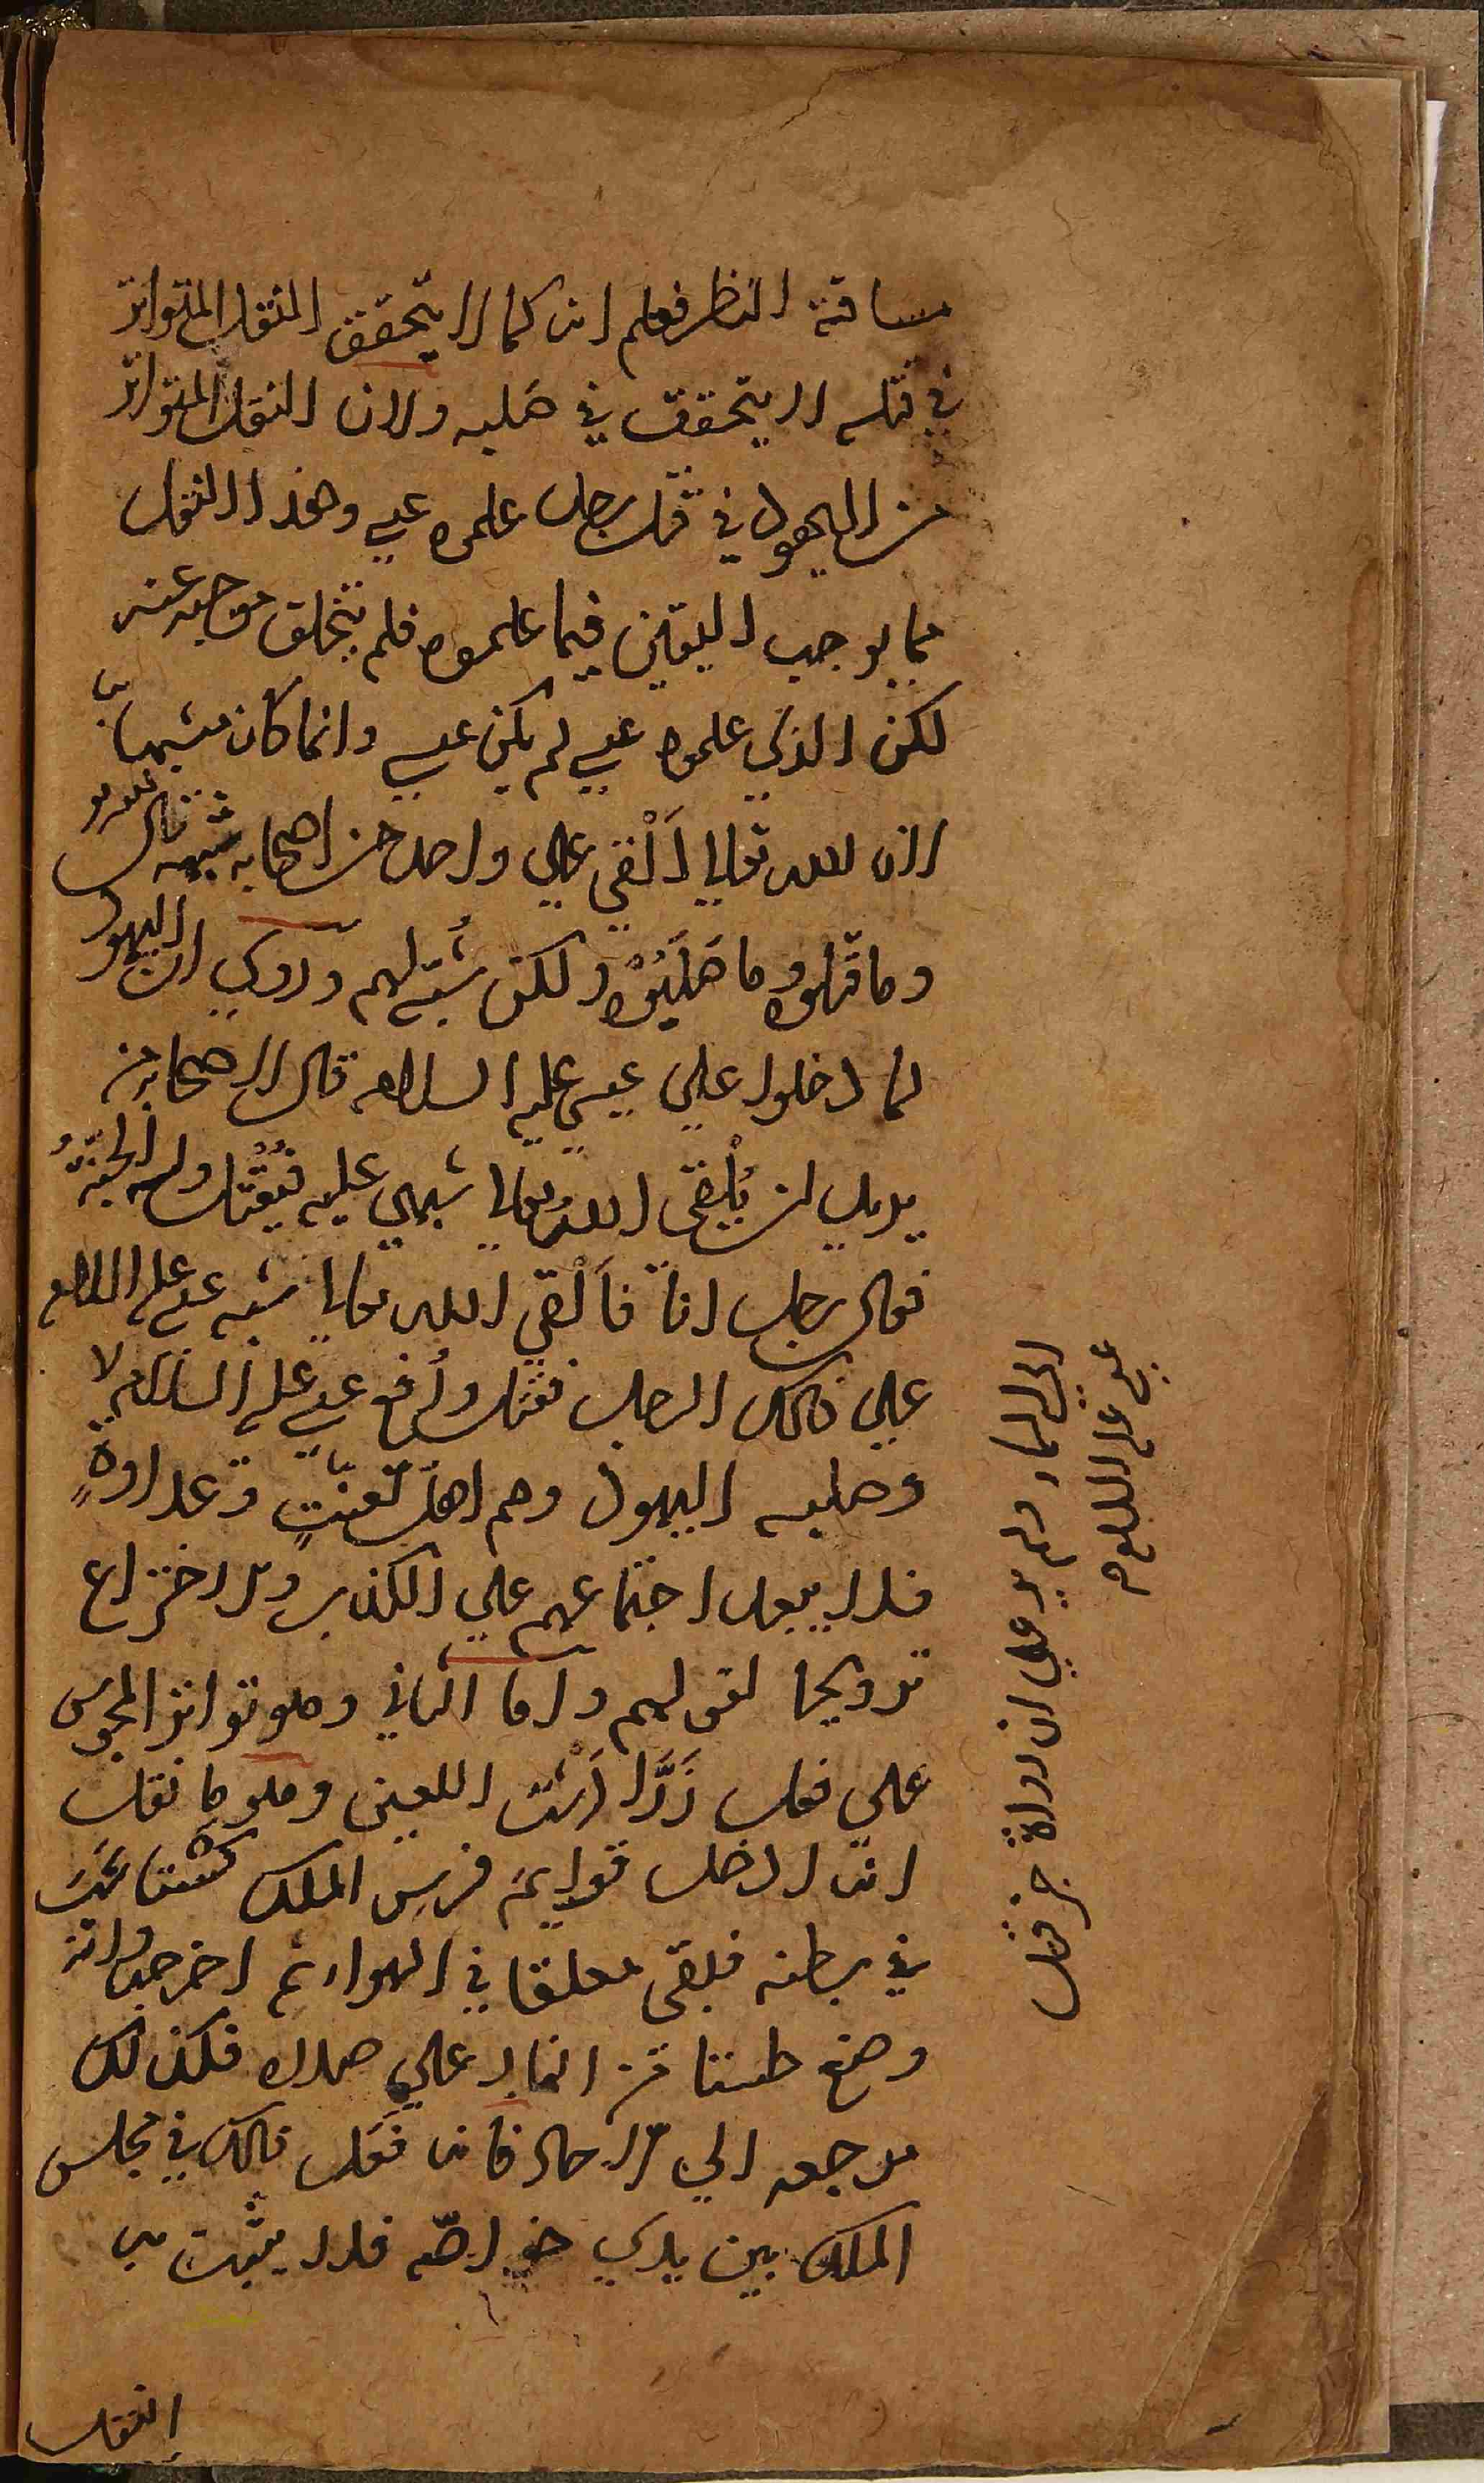 مسافة النظر فعلم انه كما لا يتحقق النقل المتواتر
في قتله لا يتحقق في صلبه ولان النقل المتواتر
من اليهود في قتل رجل علموه عيسى وهذا النقل
مما يوجب اليقين فيما علموه فلم يتخلف موجبه عنه
لكن الذي علموه عيسي لم يكن عيسي وانما كان مشبها به
لان الله تعالي اَلْقي علي واحد من اصحابه شبهه قال
وما قتلوه وما صَلَبُوْه ولكن شُبّه لهم وروي ان اليهود
لما دخلوا علي عيسي عليه السلام قال لاصحابه من
يريد ان يُلْقى اللهُ تعالي شبهي عليه فيُقْتل وله الجنّةُ
فقال رجل انا فاَلْقي الله تعالي شبه عيسى عليه السلام
علي ذلك الرجل فقتل ورُفع عيسي عليه السلام لا
وصلبه اليهود وهم اهل تعنّتٍ وعداوةٍ
فلا يبعد اجتماعهم علي الكذب والاختراع
ترويجا لقولهم واما الثاني وهو تواتر المجوس
علي فعل زَرَّادُشْت اللعين وهو ما نقل
انه ادخل قوايم فرس الملك كشتاسب
في بطنه فبقي معلقا في الهواء ثم اخرجها وانه
وضع طستا من النار علي صدره فكذلك
مرجعه الي الآحاد فانه فعل ذلك في مجلس
الملك بين يدي خواصّه فلا يثبت به
النقل
الي السماء ولم يوجد لان رواة خبر قتل
عيسى عليه السلام